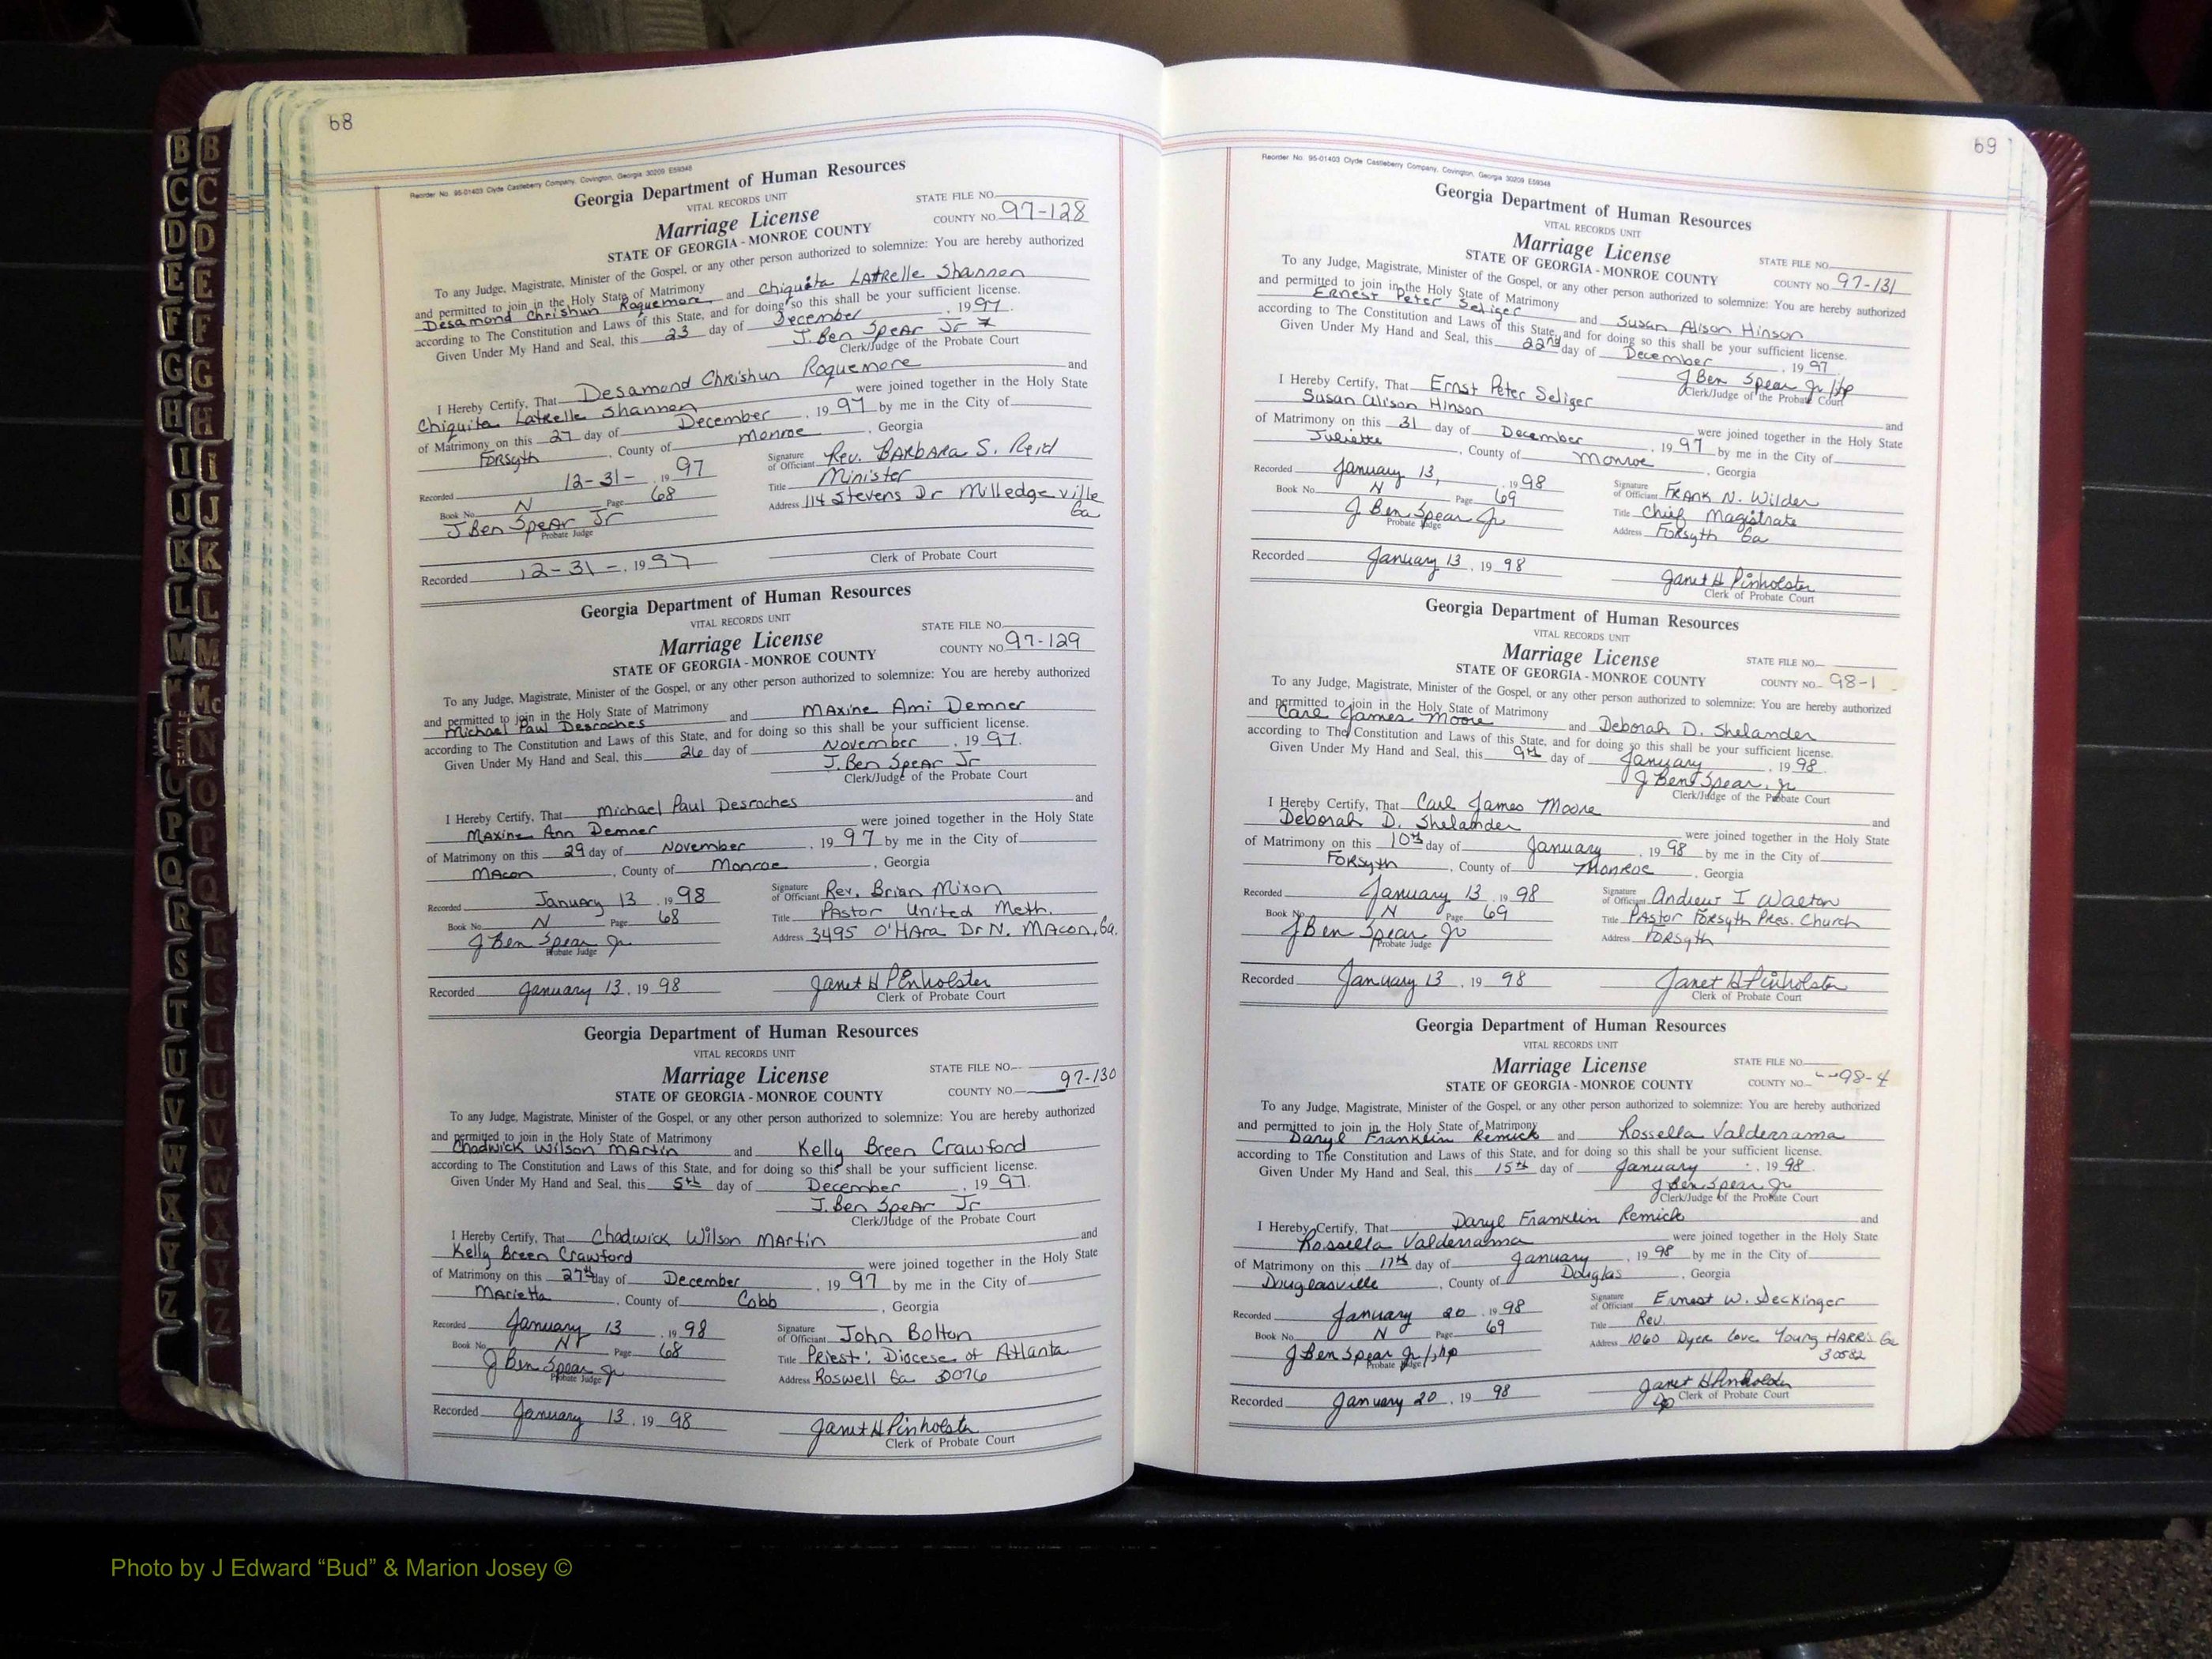 68
Reorder No. 95-01403 Clyde Castleberry Company, Covington, Georgia 30209 E59348
Georgia Department of Human Resources
VITAL RECORDS UNIT
STATE FILE NO.
Marriage License
COUNTY NO. 97-128
STATE OF GEORGIA - MONROE COUNTY
To any Judge, Magistrate, Minister of the Gospel, or any other person authorized to solemnize: You are hereby authorized
and permitted to join in the Holy State of Matrimony
Desamond Chrishun Roquemore and Chiquita LAtRelle Shannon
according to The Constitution and Laws of this State, and for doing so this shall be your sufficient license.
Given Under My Hand and Seal, this 23 day of December, 1997.
J. Ben SpeAr Jr
Clerk/Judge of the Probate Court
I Hereby Certify, That Desamond Chrishun Roquemore and
Chiquita LatRelle Shannon were joined together in the Holy State
of Matrimony on this 27 day of December, 1997 by me in the City of
Forsyth, County of Monroe, Georgia
Recorded 12-31-, 1997
Signature of Officiant Rev. BARbARa S. Reid
Book No. N Page 68
Title Minister
J. Ben SpeAr Jr
Probate Judge
Address 114 Stevens Dr Milledgeville
Ga
Recorded 12-31-, 1997
Clerk of Probate Court
Georgia Department of Human Resources
VITAL RECORDS UNIT
STATE FILE NO.
Marriage License
COUNTY NO. 97-129
STATE OF GEORGIA - MONROE COUNTY
To any Judge, Magistrate, Minister of the Gospel, or any other person authorized to solemnize: You are hereby authorized
and permitted to join in the Holy State of Matrimony
Michael Paul Desroches and MAxine Ami Demner
according to The Constitution and Laws of this State, and for doing so this shall be your sufficient license.
Given Under My Hand and Seal, this 26 day of November, 1997.
J. Ben SpeAr Jr
Clerk/Judge of the Probate Court
I Hereby Certify, That Michael Paul Desroches and
MAxine Ann Demner were joined together in the Holy State
of Matrimony on this 29 day of November, 1997 by me in the City of
MAcon, County of Monroe, Georgia
Recorded January 13, 1998
Signature of Officiant Rev. Brian Mixon
Book No. N Page 68
Title PAstor United Meth.
J Ben Spear Jr
Probate Judge
Address 3495 O'HAra Dr N. MAcon, Ga.
Recorded January 13, 1998
Janet H Pinholster
Clerk of Probate Court
Georgia Department of Human Resources
VITAL RECORDS UNIT
STATE FILE NO.
Marriage License
COUNTY NO. 97-130
STATE OF GEORGIA - MONROE COUNTY
To any Judge, Magistrate, Minister of the Gospel, or any other person authorized to solemnize: You are hereby authorized
and permitted to join in the Holy State of Matrimony
Chadwick Wilson MArtin and Kelly Breen Crawford
according to The Constitution and Laws of this State, and for doing so this shall be your sufficient license.
Given Under My Hand and Seal, this 5th day of December, 1997.
J. Ben SpeAr Jr
Clerk/Judge of the Probate Court
I Hereby Certify, That Chadwick Wilson MArtin and
Kelly Breen Crawford were joined together in the Holy State
of Matrimony on this 27th day of December, 1997 by me in the City of
MArietta, County of Cobb, Georgia
Recorded January 13, 1998
Signature of Officiant John Bolton
Book No. N Page 68
Title Priest: Diocese of Atlanta
J Ben Spear Jr
Probate Judge
Address Roswell Ga 30076
Recorded January 13, 1998
Janet H Pinholster
Clerk of Probate Court
69
Reorder No. 95-01403 Clyde Castleberry Company, Covington, Georgia 30209 E59348
Georgia Department of Human Resources
VITAL RECORDS UNIT
Marriage License
STATE FILE NO.
STATE OF GEORGIA - MONROE COUNTY
COUNTY NO. 97-131
To any Judge, Magistrate, Minister of the Gospel, or any other person authorized to solemnize: You are hereby authorized
and permitted to join in the Holy State of Matrimony
Ernest Peter Seliger and Susan Alison Hinson
according to The Constitution and Laws of this State, and for doing so this shall be your sufficient license.
Given Under My Hand and Seal, this 22nd day of December, 1997.
J Ben Spear Jr /hp
Clerk/Judge of the Probate Court
I Hereby Certify, That Ernst Peter Seliger and
Susan Alison Hinson were joined together in the Holy State
of Matrimony on this 31 day of December, 1997 by me in the City of
Juliette, County of Monroe, Georgia
Recorded January 13, 1998
Signature of Officiant FRAnk N. Wilder
Book No. N Page 69
Title Chief Magistrate
J Ben Spear Jr
Probate Judge
Address Forsyth Ga
Recorded January 13, 1998
Janet H Pinholster
Clerk of Probate Court
Georgia Department of Human Resources
VITAL RECORDS UNIT
Marriage License
STATE FILE NO.
STATE OF GEORGIA - MONROE COUNTY
COUNTY NO. 98-1
To any Judge, Magistrate, Minister of the Gospel, or any other person authorized to solemnize: You are hereby authorized
and permitted to join in the Holy State of Matrimony
Carl James Moore and Deborah D. Shelander
according to The Constitution and Laws of this State, and for doing so this shall be your sufficient license.
Given Under My Hand and Seal, this 9th day of January, 1998.
J Ben Spear, Jr
Clerk/Judge of the Probate Court
I Hereby Certify, That Carl James Moore and
Deborah D. Shelander were joined together in the Holy State
of Matrimony on this 10th day of January, 1998 by me in the City of
Forsyth, County of Monroe, Georgia
Recorded January 13, 1998
Signature of Officiant Andrew I Walton
Book No. N Page 69
Title PAstor Forsyth Pres. Church
J Ben Spear Jr
Probate Judge
Address Forsyth
Recorded January 13, 1998
Janet H Pinholster
Clerk of Probate Court
Georgia Department of Human Resources
VITAL RECORDS UNIT
Marriage License
STATE FILE NO.
STATE OF GEORGIA - MONROE COUNTY
COUNTY NO. 98-4
To any Judge, Magistrate, Minister of the Gospel, or any other person authorized to solemnize: You are hereby authorized
and permitted to join in the Holy State of Matrimony
Daryl Franklin Remick and Rossella Valderrama
according to The Constitution and Laws of this State, and for doing so this shall be your sufficient license.
Given Under My Hand and Seal, this 15th day of January, 1998.
J Ben Spear Jr
Clerk/Judge of the Probate Court
I Hereby Certify, That Daryl Franklin Remick and
Rossella Valderrama were joined together in the Holy State
of Matrimony on this 17th day of January, 1998 by me in the City of
Douglasville, County of Douglas, Georgia
Recorded January 20, 1998
Signature of Officiant Ernest W. Deckinger
Book No. N Page 69
Title Rev.
J Ben Spear Jr /hp
Probate Judge
Address 1060 Dyer Cove Young HARRis Ga
30582
Recorded January 20, 1998
Janet H Pinholster
Clerk of Probate Court
B B
C C
D D
E E
F F
G G
H H
I I
J J
K K
L L
M M
Mc
FEMALE
N
O
P P
Q Q
R R
S S
T T
U U
V V
W W
X X
Y Y
Z Z
Photo by J Edward “Bud” & Marion Josey ©